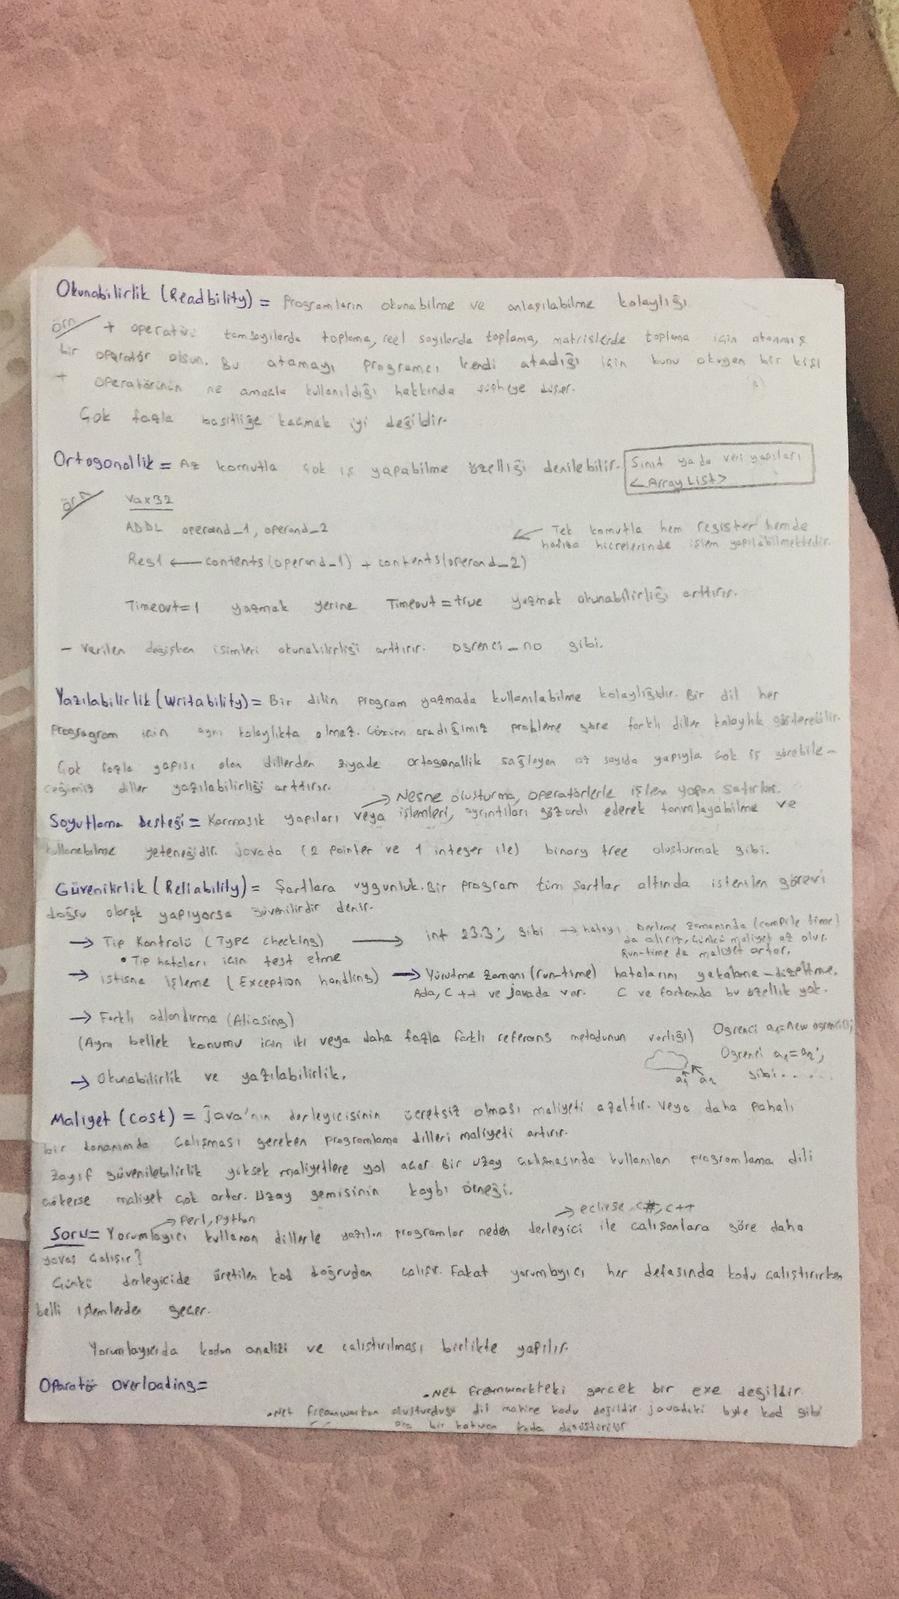 Okunabilirlik (Readbility) = Programların okunabilme ve anlaşılabilme kolaylığı.
örn/ + operatörü tamsayılarda toplama, reel sayılarda toplama, matrislerde toplama için atanmış
bir operatör olsun. Bu atamayı programcı kendi atadığı için bunu okuyan bir kişi
+ operatörünün ne amaçla kullanıldığı hakkında şüpheye düşer.
Çok fazla basitliğe kaçmak iyi değildir.
Ortogonallik = Az komutla çok iş yapabilme özelliği denilebilir.
Sınıf ya da veri yapıları
<ArrayList>
örn/ Vax32
ADDL operand_1, operand_2
← Tek komutla hem register hemde
hafıza hücrelerinde işlem yapılabilmektedir.
Reg1 ← contents(operand_1) + contents(operand_2)
Timeout=1 yazmak yerine Timeout=true yazmak okunabilirliği arttırır.
- Verilen değişken isimleri okunabilirliği arttırır. ogrenci_no gibi.
Yazılabilirlik (Writability) = Bir dilin program yazmada kullanılabilme kolaylığıdır. Bir dil her
program için aynı kolaylıkta olmaz. Çözüm aradığımız probleme göre farklı diller kolaylık gösterebilir.
Çok fazla yapısı olan dillerden ziyade ortogonallik sağlayan az sayıda yapıyla çok iş görebile-
ceğimiz diller yazılabilirliği arttırır.
→ Nesne oluşturma, operatörlerle işlem yapan satırlar.
Soyutlama Desteği = Karmaşık yapıları veya işlemleri, ayrıntıları gözardı ederek tanımlayabilme ve
kullanabilme yeteneğidir. Javada (2 pointer ve 1 integer ile) binary tree oluşturmak gibi.
Güvenirlik (Reliability) = Şartlara uygunluk. Bir program tüm şartlar altında istenilen görevi
doğru olarak yapıyorsa güvenilirdir denir.
→ Tip Kontrolü (Type checking) → int 23.3; gibi → hatayı derleme zamanında (compile time)
da alırız. Çünkü maliyet az olur.
• Tip hataları için test etme
Run-time da maliyet artar.
→ istisna işleme (Exception handling) → Yürütme zamanı (run-time) hatalarını yakalama-düzeltme.
Ada, C++ ve Javada var. C ve fortranda bu özellik yok.
→ Farklı adlandırma (Aliasing)
(Aynı bellek konumu için iki veya daha fazla farklı referans metodunun varlığı)
Ogrenci a1=new ogrenci();
Ogrenci a1=a2;
gibi.....
a1 a2
→ Okunabilirlik ve yazılabilirlik.
Maliyet (Cost) = Java'nın derleyicisinin ücretsiz olması maliyeti azaltır. Veya daha pahalı
bir donanımda çalışması gereken programlama dilleri maliyeti artırır.
Zayıf güvenilebilirlik yüksek maliyetlere yol açar Bir uzay çalışmasında kullanılan programlama dili
çökerse maliyet çok artar. Uzay gemisinin kaybı örneği.
→ Perl, Python
→ eclipse, c#, c++
Soru = Yorumlayıcı kullanan dillerle yazılan programlar neden derleyici ile çalışanlara göre daha
yavaş çalışır?
Çünkü derleyicide üretilen kod doğrudan çalışır. Fakat yorumlayıcı her defasında kodu çalıştırırken
belli işlemlerden geçer.
Yorumlayıcıda kodun analizi ve çalıştırılması birlikte yapılır.
Oparatör overloading =
.Net Freamworkteki gerçek bir exe değildir.
.Net Freamworkun oluşturduğu dil makine kodu değildir. Javadaki byte kod gibi
ara bir katman koda dönüştürülür